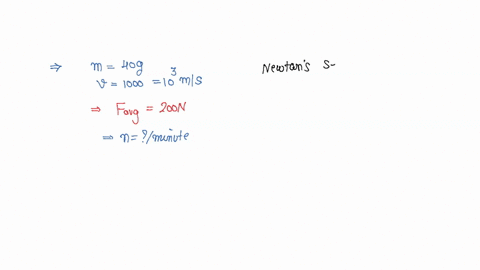 ⇒ m = 40g
v = 1000 = 10³ m/s
⇒ Favg = 200N
⇒ n = ?/minute
Newtan's s-